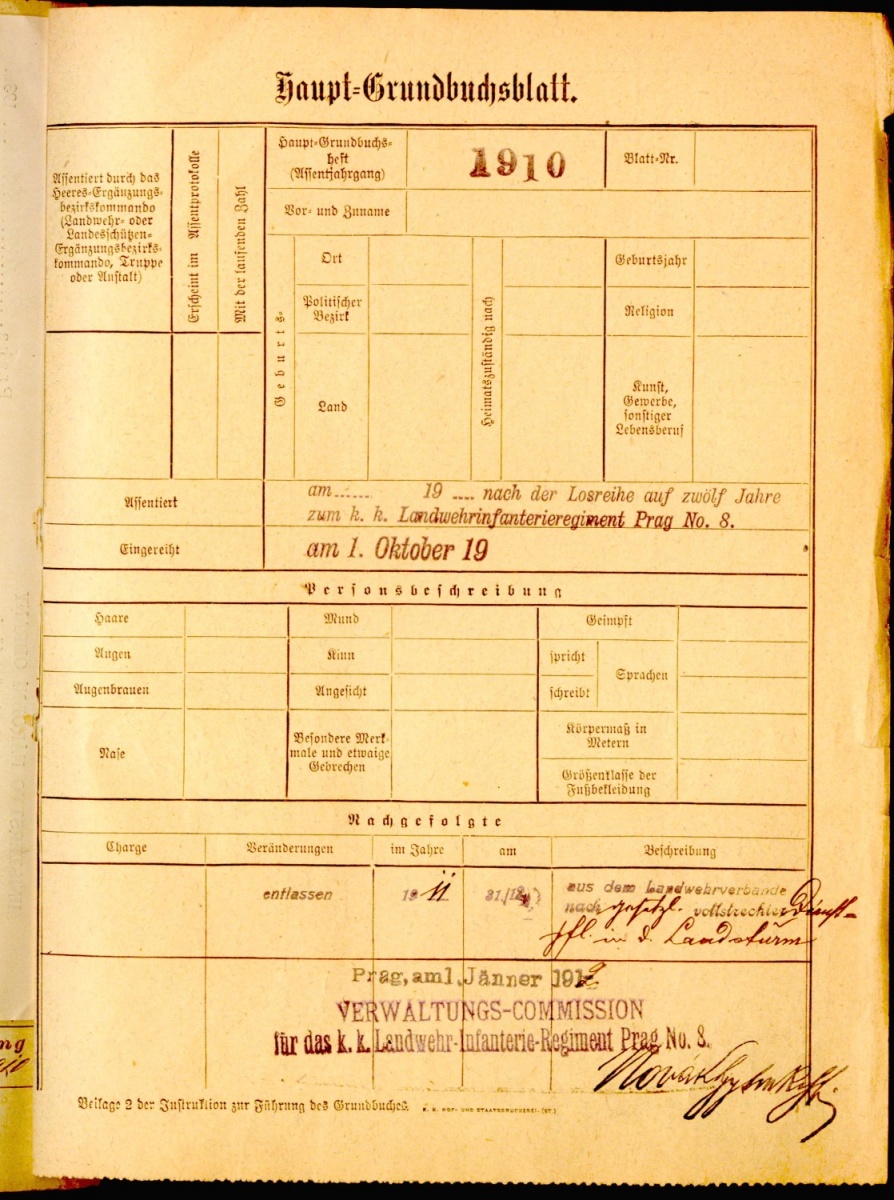 Haupt-Grundbuchsblatt.
Assentiert durch das
Heeres-Ergänzungs-
bezirkskommando
(Landwehr- oder
Landesschützen-
Ergänzungsbezirks-
kommando, Truppe
oder Anstalt)
Erscheint im Assentprotokolle
Mit der laufenden Zahl
Haupt-Grundbuchs-
heft
(Assentjahrgang)
1910
Blatt-Nr.
Vor- und Zuname
Geburts-
Ort
Politischer
Bezirk
Land
Heimatszuständig nach
Geburtsjahr
Religion
Kunst,
Gewerbe,
sonstiger
Lebensberuf
Assentiert
am...... 19 .... nach der Losreihe auf zwölf Jahre
zum k. k. Landwehrinfanterieregiment Prag No. 8.
Eingereiht
am 1. Oktober 19
Personsbeschreibung
Haare
Mund
Geimpft
Augen
Kinn
spricht
Sprachen
Augenbrauen
Angesicht
schreibt
Nase
Besondere Merk-
male und etwaige
Gebrechen
Körpermaß in
Metern
Größenklasse der
Fußbekleidung
Nachgefolgte
Charge
Veränderungen
im Jahre
am
Beschreibung
entlassen
19 11
31./12.
aus dem Landwehrverbande
nach gesetzl. vollstreckter Dienst-
pfl. in d. Landsturm
Prag, am 1. Jänner 1912
VERWALTUNGS-COMMISSION
für das k. k. Landwehr-Infanterie-Regiment Prag No. 8.
Novák
Beilage 2 der Instruktion zur Führung des Grundbuches.
K. K. HOF- UND STAATSDRUCKEREI. (ST.)